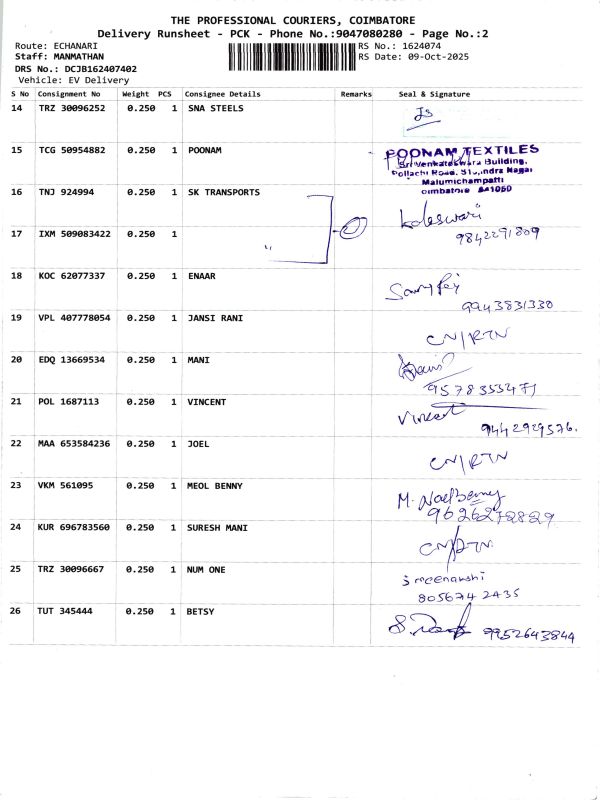 THE PROFESSIONAL COURIERS, COIMBATORE
Delivery Runsheet - PCK - Phone No.:9047080280 - Page No.:2
Route: ECHANARI
RS No.: 1624074
Staff: MANMATHAN
RS Date: 09-Oct-2025
DRS No.: DCJB162407402
Vehicle: EV Delivery
S No Consignment No Weight PCS Consignee Details Remarks Seal & Signature
14 TRZ 30096252 0.250 1 SNA STEELS
15 TCG 50954882 0.250 1 POONAM
POONAM TEXTILES
Sri Venkateswara Building,
Pollachi Road, Nagar
Malumichampatti
16 TNJ 924994 0.250 1 SK TRANSPORTS
17 IXM 509083422 0.250 1 "
9842291809
18 KOC 62077337 0.250 1 ENAAR
9943831330
19 VPL 407778054 0.250 1 JANSI RANI
CN/RTN
20 EDQ 13669534 0.250 1 MANI
21 POL 1687113 0.250 1 VINCENT Vincent
9442929576.
22 MAA 653584236 0.250 1 JOEL
CN/RTN
23 VKM 561095 0.250 1 MEOL BENNY
24 KUR 696783560 0.250 1 SURESH MANI
CN/RTN.
25 TRZ 30096667 0.250 1 NUM ONE
8056742435
26 TUT 345444 0.250 1 BETSY 9952643844